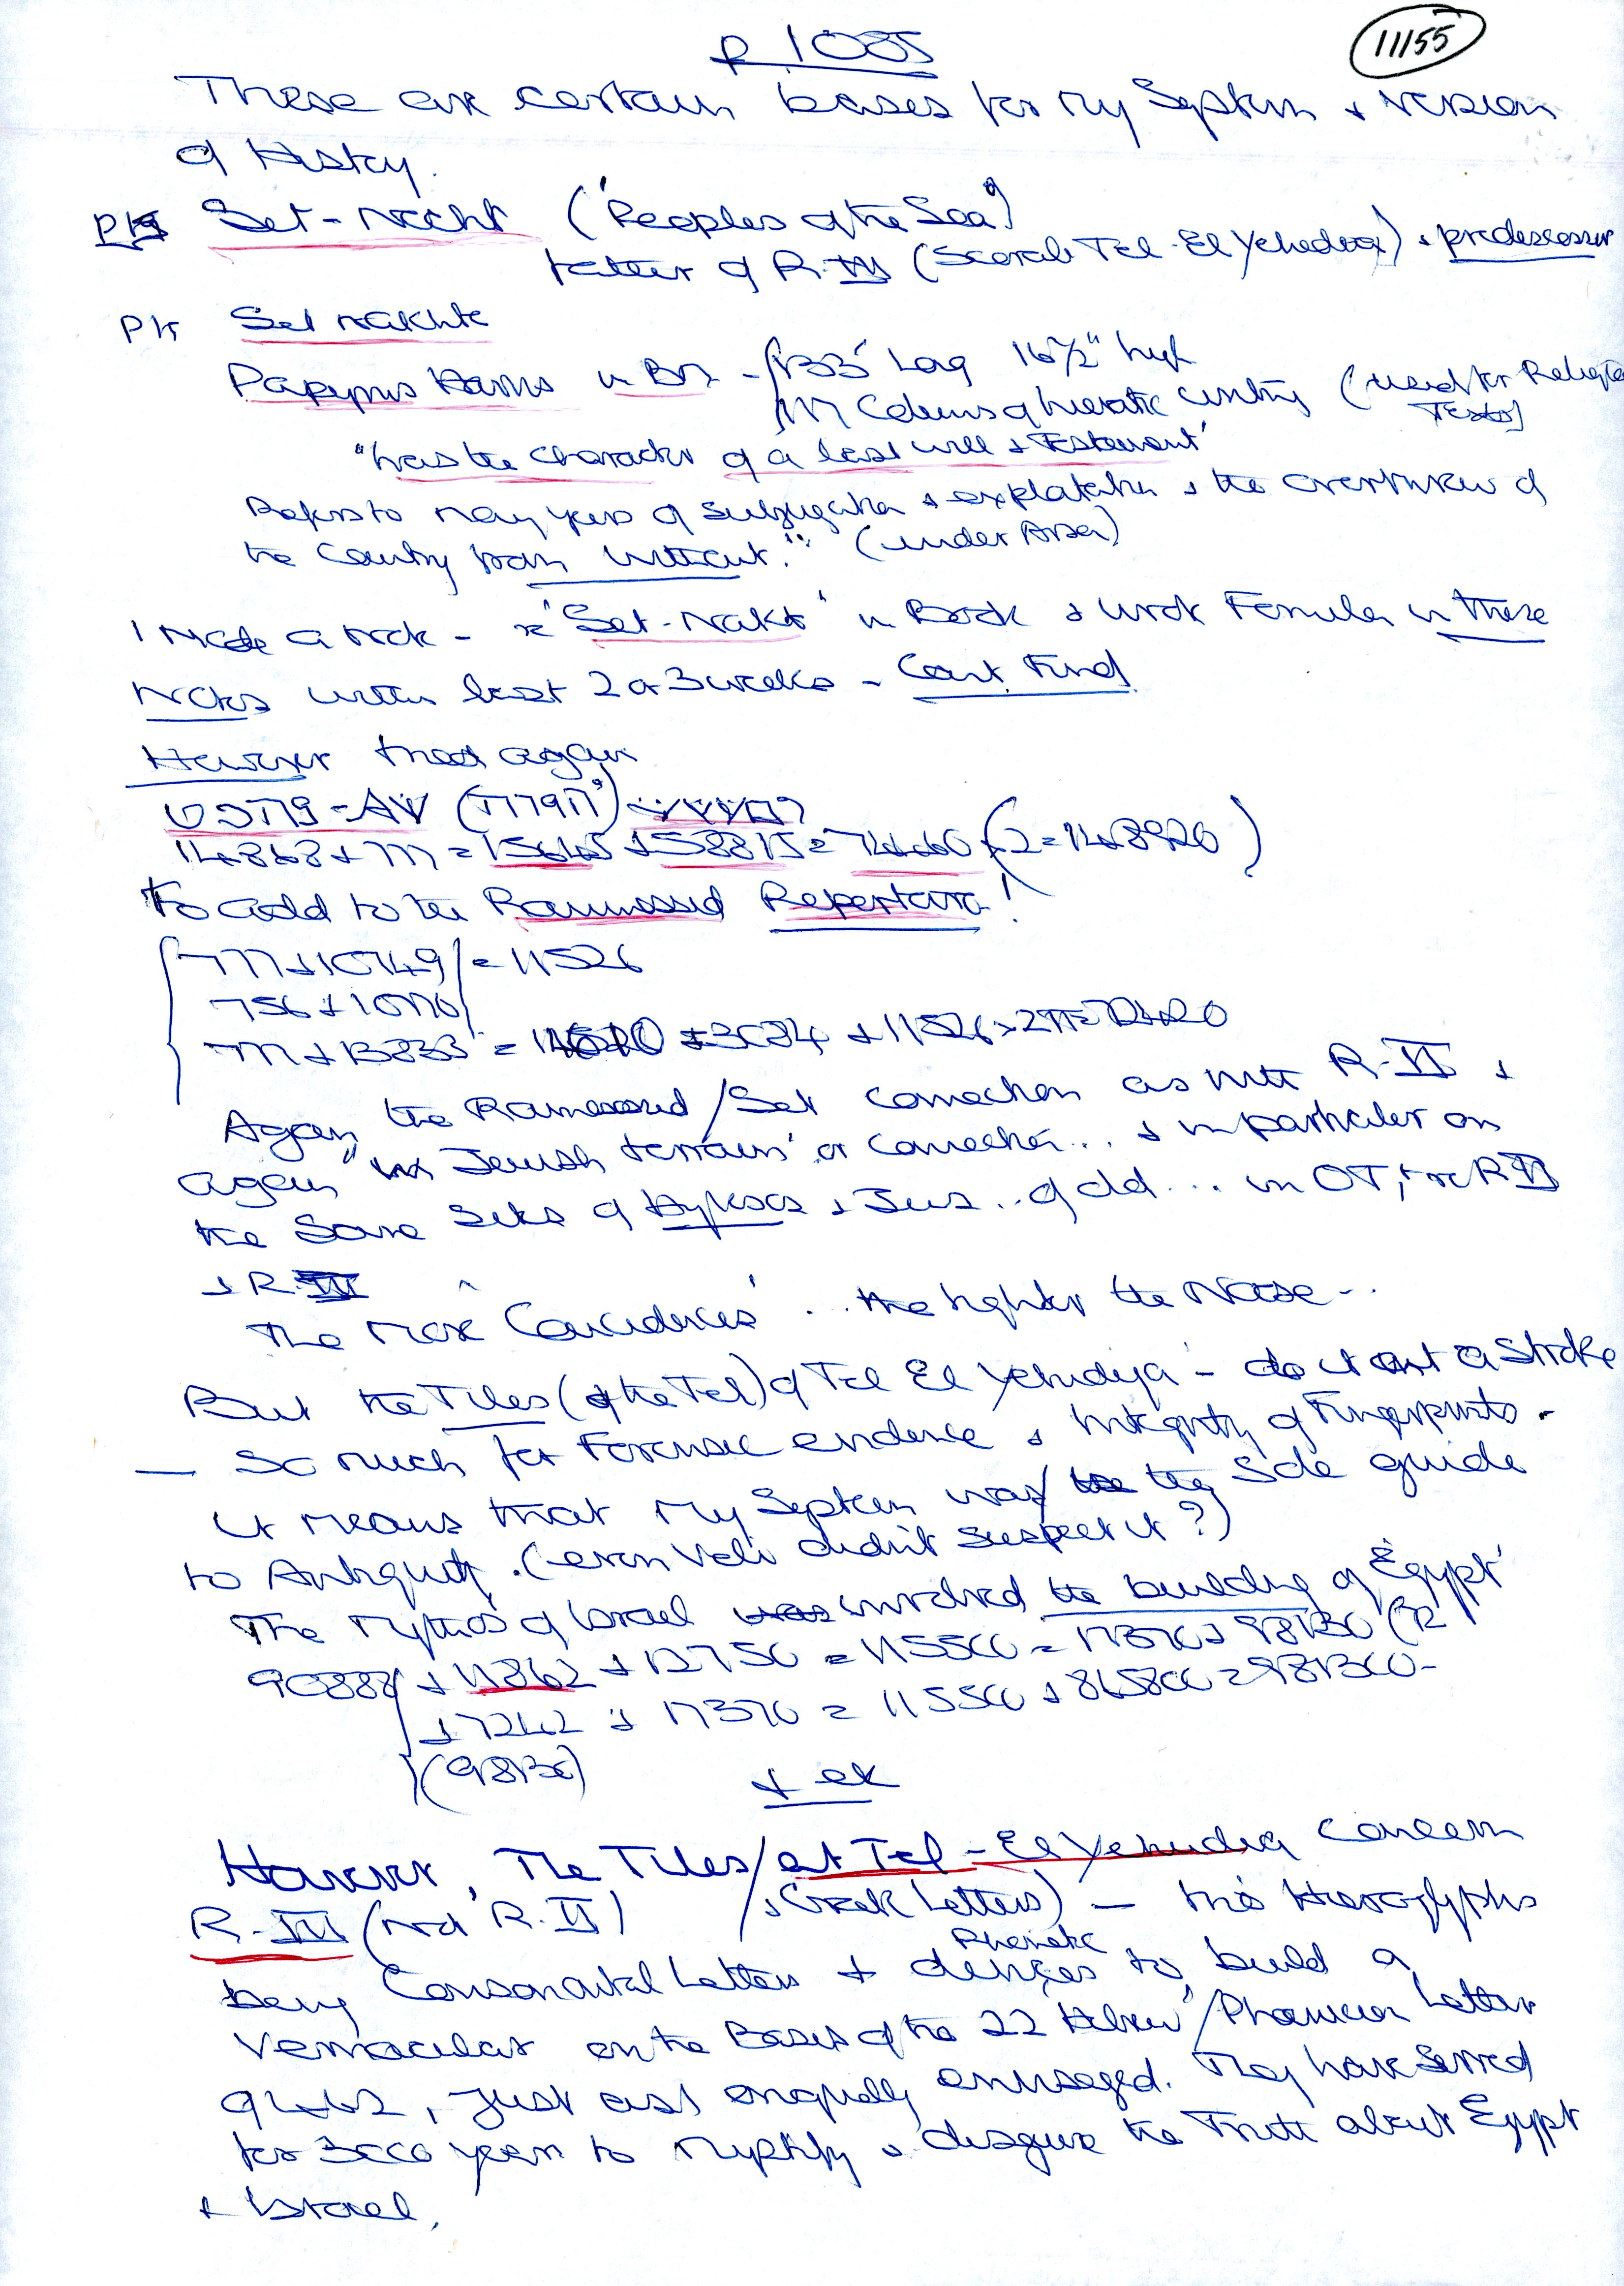 p 1085
11155
These are certain bases for my System + version
of History.
Set-Nacht ('Peoples of the Sea')
father of R. III (Scarab Tel-El Yehudea) + predescessor
Set nakhte
Papyrus Harris in BM - 133' Long 16½" high
Columns of hieratic writing (used for Religio
Texts)
"has the character of a last will + Testament"
Refers to many years of subjugation + exploitation + the overthrow of
the Country from without." (under Arsa)
I made a note - re 'Set-Nakt' in Book + work Formula in these
Notes within last 2 or 3 weeks - Can't Find
However tried again
14868 + 777 = 15645 + 58815 = 74460 (2 = 148920)
To add to the Ramessed Repertoire!
777 + 10749 = 11526
756 + 10770
+ 3084 + 11526
Again, the Ramessed/Set connection as with R-II +
again in 'Jewish terrain' or connection... + in particular on
the same sites of Hyksos + Jews.. of old... in OT, + re R II
+ R. III
The more 'Coincidences'... the tighter the Noose...
But the Tiles (of the Tel) of Tel El Yehudiya' - do it at a Stroke
- So much for Forensic evidence + Integrity of Fingerprints -
it means that my System was the Sole guide
to Antiquity. (even Veli didn't suspect it?)
The mythos of Israel involved the building of Egypt'
90888 + 11862 + 12750 = 115500 = 17370 + 98130
+ 7242 + 17370 = 115500 + 865800 = 981300 -
(98130)
+ ek
However, The Tiles/at Tel-El Yehudia concern
R-III (not R.II) + Greek Letters) - this Hieroglyphs
Phonetic
being Consonantal Letters + devices to build a
Vernacular on the Bases of the 22 Hebrew/Phoenician Letter
just as originally envisaged. They have served
for 3000 years to mystify + disguise the Truth about Egypt
+ Israel.